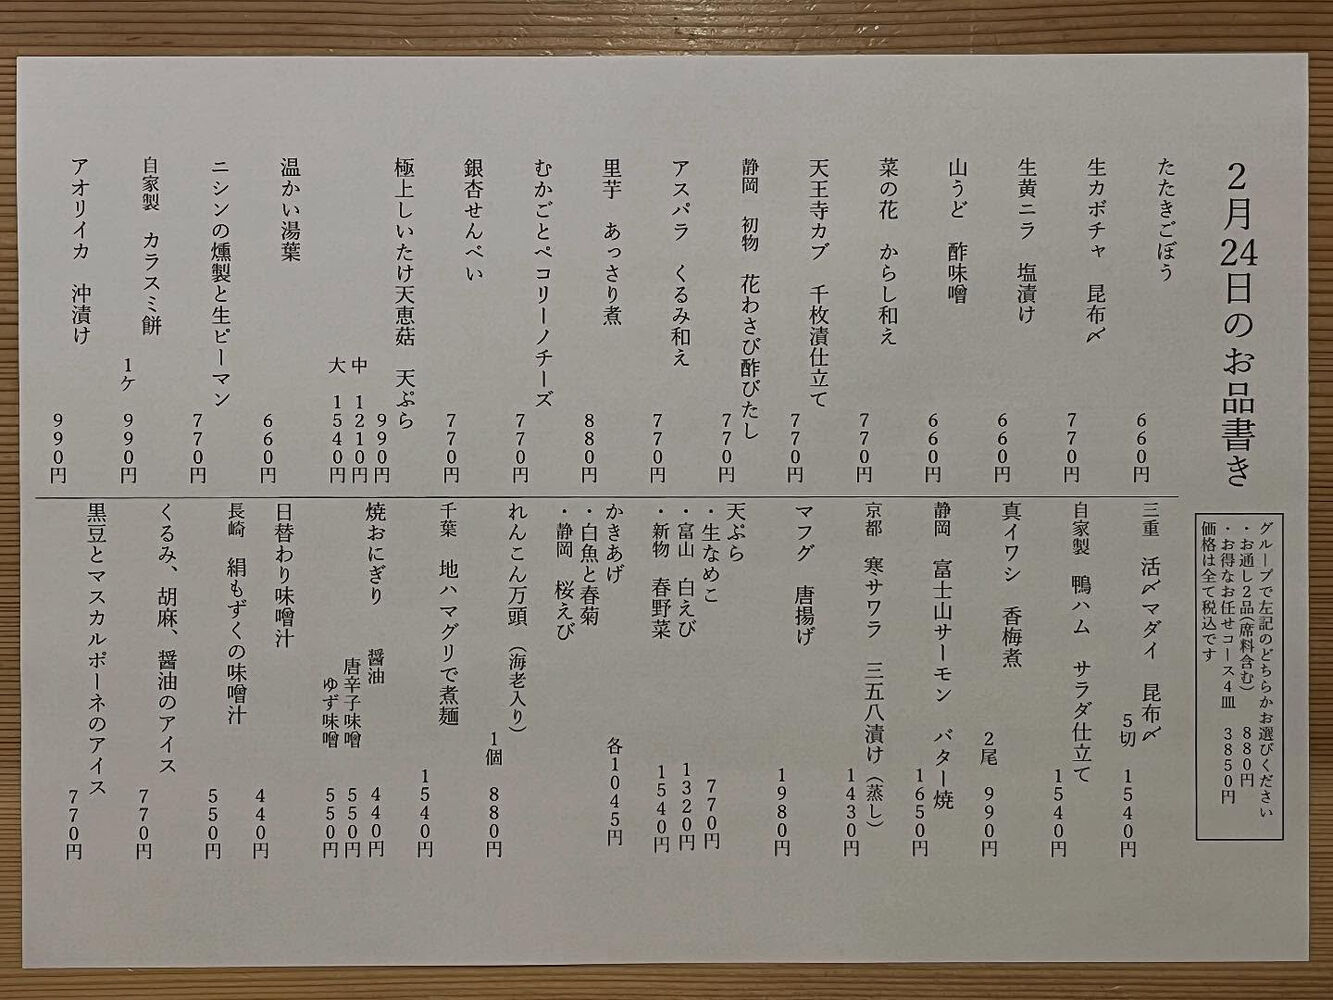 2月24日のお品書き
グループで左記のどちらかお選びください
・お通し2品(席料含む) 880円
・お得なお任せコース4皿 3850円
価格は全て税込です
たたきごぼう 660円
生カボチャ 昆布〆 770円
生黄ニラ 塩漬け 660円
山うど 酢味噌 660円
菜の花 からし和え 770円
天王寺カブ 千枚漬仕立て 770円
静岡 初物 花わさび酢びたし 770円
アスパラ くるみ和え 770円
里芋 あっさり煮 880円
むかごとペコリーノチーズ 770円
銀杏せんべい 770円
極上しいたけ天恵菇 天ぷら 990円
中 1210円
大 1540円
温かい湯葉 660円
ニシンの燻製と生ピーマン 770円
自家製 カラスミ餅 1ケ 990円
アオリイカ 沖漬け 990円
三重 活〆マダイ 昆布〆 5切 1540円
自家製 鴨ハム サラダ仕立て 1540円
真イワシ 香梅煮 2尾 990円
静岡 富士山サーモン バター焼 1650円
京都 寒サワラ 三五八漬け(蒸し) 1430円
マフグ 唐揚げ 1980円
天ぷら
・生なめこ 770円
・富山 白えび 1320円
・新物 春野菜 1540円
かきあげ 各1045円
・白魚と春菊
・静岡 桜えび
れんこん万頭(海老入り) 1個 880円
千葉 地ハマグリで煮麺 1540円
焼おにぎり 醤油 440円
唐辛子味噌 550円
ゆず味噌 550円
日替わり味噌汁 440円
長崎 絹もずくの味噌汁 550円
くるみ、胡麻、醤油のアイス 770円
黒豆とマスカルポーネのアイス 770円